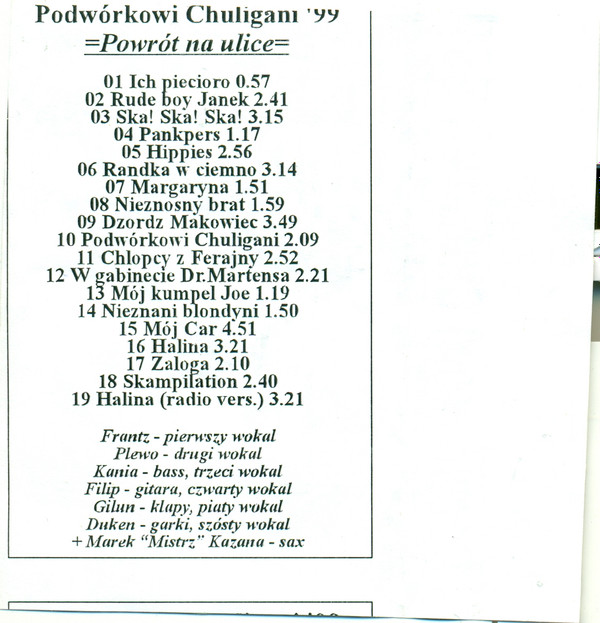 Podwórkowi Chuligani '99
=Powrót na ulice=
01 Ich piecioro 0.57
02 Rude boy Janek 2.41
03 Ska! Ska! Ska! 3.15
04 Pankpers 1.17
05 Hippies 2.56
06 Randka w ciemno 3.14
07 Margaryna 1.51
08 Nieznosny brat 1.59
09 Dzordz Makowiec 3.49
10 Podwórkowi Chuligani 2.09
11 Chlopcy z Ferajny 2.52
12 W gabinecie Dr.Martensa 2.21
13 Mój kumpel Joe 1.19
14 Nieznani blondyni 1.50
15 Mój Car 4.51
16 Halina 3.21
17 Zaloga 2.10
18 Skampilation 2.40
19 Halina (radio vers.) 3.21
Frantz - pierwszy wokal
Plewo - drugi wokal
Kania - bass, trzeci wokal
Filip - gitara, czwarty wokal
Gilun - klapy, piaty wokal
Duken - garki, szósty wokal
+ Marek "Mistrz" Kazana - sax